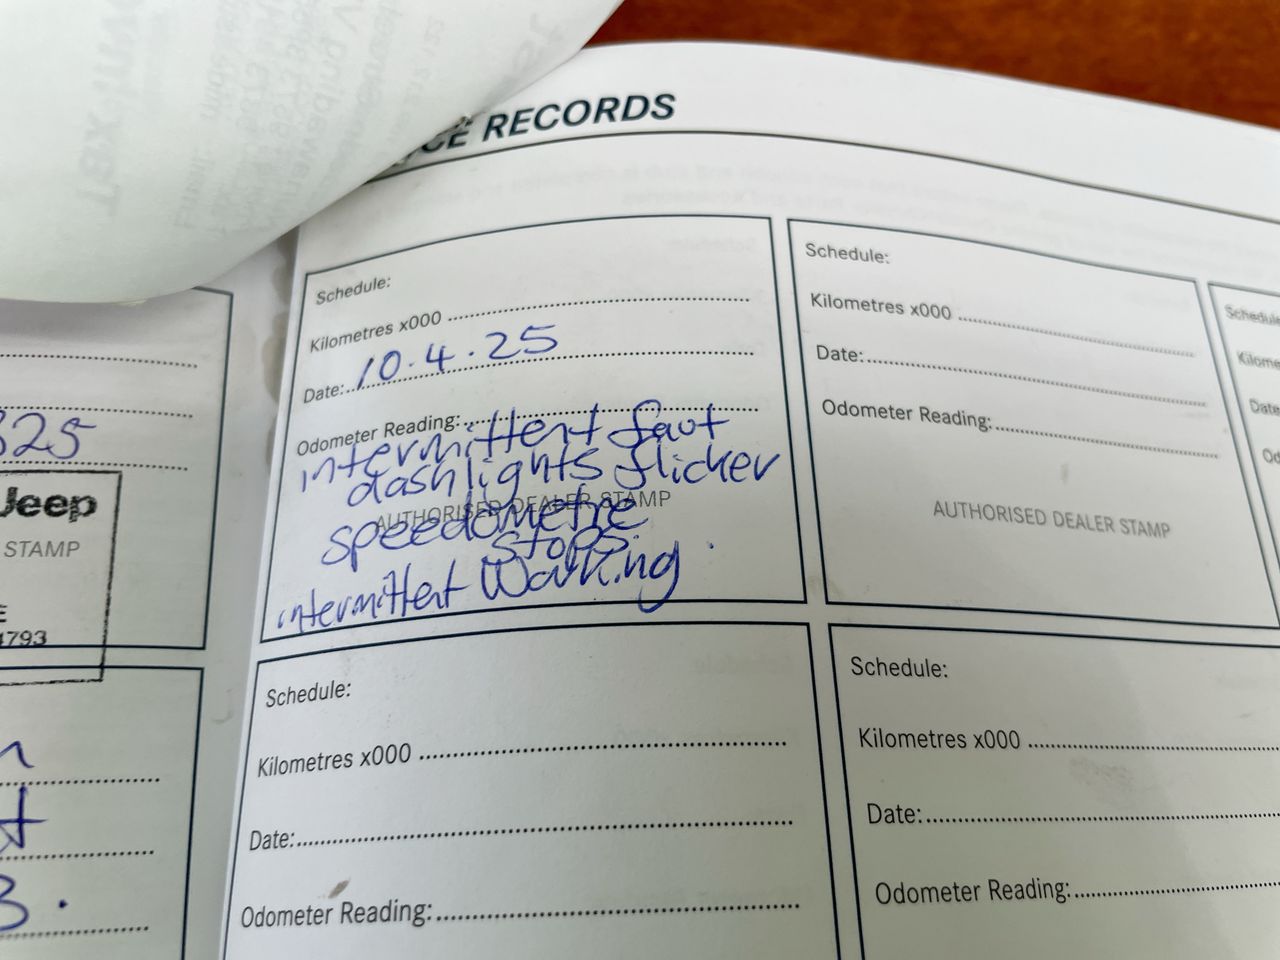 RECORDS
Schedule:
Kilometres x000
Date: 10.4.25
Odometer Reading:
intermittent faut
dash lights flicker
AUTHORISED DEALER STAMP
speedometre
stops.
intermittent Working
Schedule:
Kilometres x000
Date:
Odometer Reading:
AUTHORISED DEALER STAMP
Schedule:
Kilometres x000
Date:
Odometer Reading:
Schedule:
Kilometres x000
Date:
Odometer Reading:
Schedule
Date
825
Jeep
STAMP
4793
3.